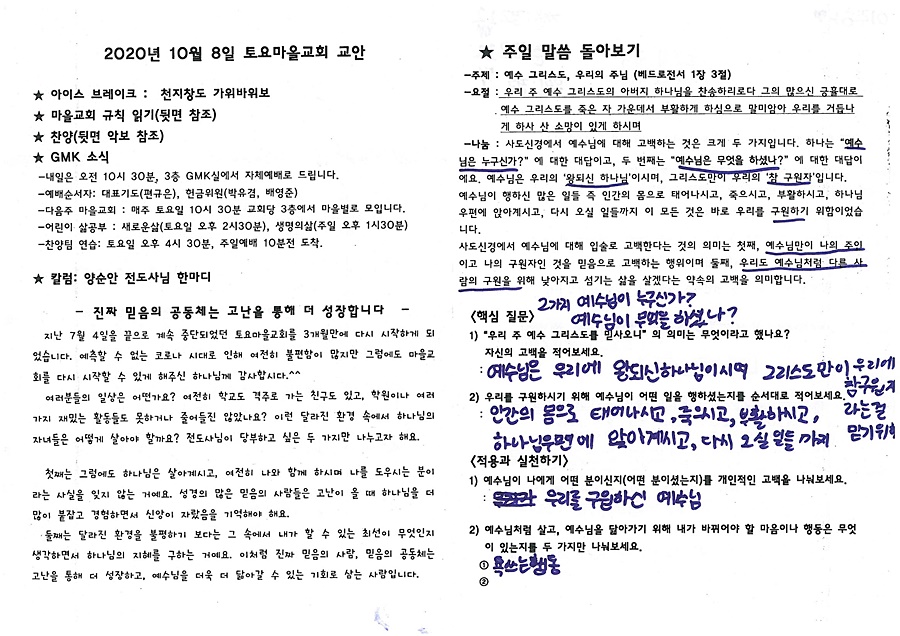 2020년 10월 8일 토요마을교회 교안
★ 아이스 브레이크 : 천지창도 가위바위보
★ 마을교회 규칙 읽기(뒷면 참조)
★ 찬양(뒷면 악보 참조)
★ GMK 소식
-내일은 오전 10시 30분, 3층 GMK실에서 자체예배로 드립니다.
-예배순서자: 대표기도(편규은), 헌금위원(박유겸, 배영준)
-다음주 마을교회 : 매주 토요일 10시 30분 교회당 3층에서 마을별로 모입니다.
-어린이 삶공부 : 새로운삶(토요일 오후 2시30분), 생명의삶(주일 오후 1시30분)
-찬양팀 연습: 토요일 오후 4시 30분, 주일예배 10분전 도착.
★ 칼럼: 양순안 전도사님 한마디
- 진짜 믿음의 공동체는 고난을 통해 더 성장합니다 -
지난 7월 4일을 끝으로 계속 중단되었던 토요마을교회를 3개월만에 다시 시작하게 되
었습니다. 예측할 수 없는 코로나 시대로 인해 여전히 불편함이 많지만 그럼에도 마을교
회를 다시 시작할 수 있게 해주신 하나님께 감사합시다.^^
여러분들의 일상은 어떤가요? 여전히 학교도 격주로 가는 친구도 있고, 학원이나 여러
가지 재밌는 활동들도 못하거나 줄어들진 않았나요? 이런 달라진 환경 속에서 하나님의
자녀들은 어떻게 살아야 할까요? 전도사님이 당부하고 싶은 두 가지만 나누고자 해요.
첫째는 그럼에도 하나님은 살아계시고, 여전히 나와 함께 하시며 나를 도우시는 분이
라는 사실을 잊지 않는 거예요. 성경의 많은 믿음의 사람들은 고난이 올 때 하나님을 더
많이 붙잡고 경험하면서 신앙이 자랐음을 기억해야 해요.
둘째는 달라진 환경을 불평하기 보다는 그 속에서 내가 할 수 있는 최선이 무엇인지
생각하면서 하나님의 지혜를 구하는 거예요. 이처럼 진짜 믿음의 사람, 믿음의 공동체는
고난을 통해 더 성장하고, 예수님을 더욱 더 닮아갈 수 있는 기회로 삼는 사람입니다.
★ 주일 말씀 돌아보기
-주제 : 예수 그리스도, 우리의 주님 (베드로전서 1장 3절)
-요절 : 우리 주 예수 그리스도의 아버지 하나님을 찬송하리로다 그의 많으신 긍휼대로
예수 그리스도를 죽은 자 가운데서 부활하게 하심으로 말미암아 우리를 거듭나
게 하사 산 소망이 있게 하시며
-나눔 : 사도신경에서 예수님에 대해 고백하는 것은 크게 두 가지입니다. 하나는 "예수
님은 누구신가?" 에 대한 대답이고, 두 번째는 "예수님은 무엇을 하셨나?" 에 대한 대답이
에요. 예수님은 우리의 '왕되신 하나님'이시며, 그리스도만이 우리의 '참 구원자'입니다.
예수님이 행하신 많은 일들 즉 인간의 몸으로 태어나시고, 죽으시고, 부활하시고, 하나님
우편에 앉아계시고, 다시 오실 일들까지 이 모든 것은 바로 우리를 구원하기 위함이었습
니다.
사도신경에서 예수님에 대해 입술로 고백한다는 것의 의미는 첫째, 예수님만이 나의 주인
이고 나의 구원자인 것을 믿음으로 고백하는 행위이며 둘째, 우리도 예수님처럼 다른 사
람의 구원을 위해 낮아지고 섬기는 삶을 살겠다는 약속의 고백을 의미합니다.
2가지 예수님이 누구신가?
<핵심 질문> 예수님이 무엇을 하셨나?
1) "우리 주 예수 그리스도를 믿사오니" 의 의미는 무엇이라고 했나요?
자신의 고백을 적어보세요.
: 예수님은 우리에 왕되신하나님이시며 그리스도만이 우리에
참구원자
라는걸
믿기위해
2) 우리를 구원하시기 위해 예수님이 어떤 일을 행하셨는지를 순서대로 적어보세요.
: 인간의 몸으로 태어나시고, 죽으시고, 부활하시고,
하나님우편에 앉아계시고, 다시 오실 일들 까지
<적용과 실천하기>
1) 예수님이 나에게 어떤 분이신지(어떤 분이셨는지)를 개인적인 고백을 나눠보세요.
: 우리를 구원하신 예수님
2) 예수님처럼 살고, 예수님을 닮아가기 위해 내가 바뀌어야 할 마음이나 행동은 무엇
이 있는지를 두 가지만 나눠보세요.
① 욕쓰는행동
②